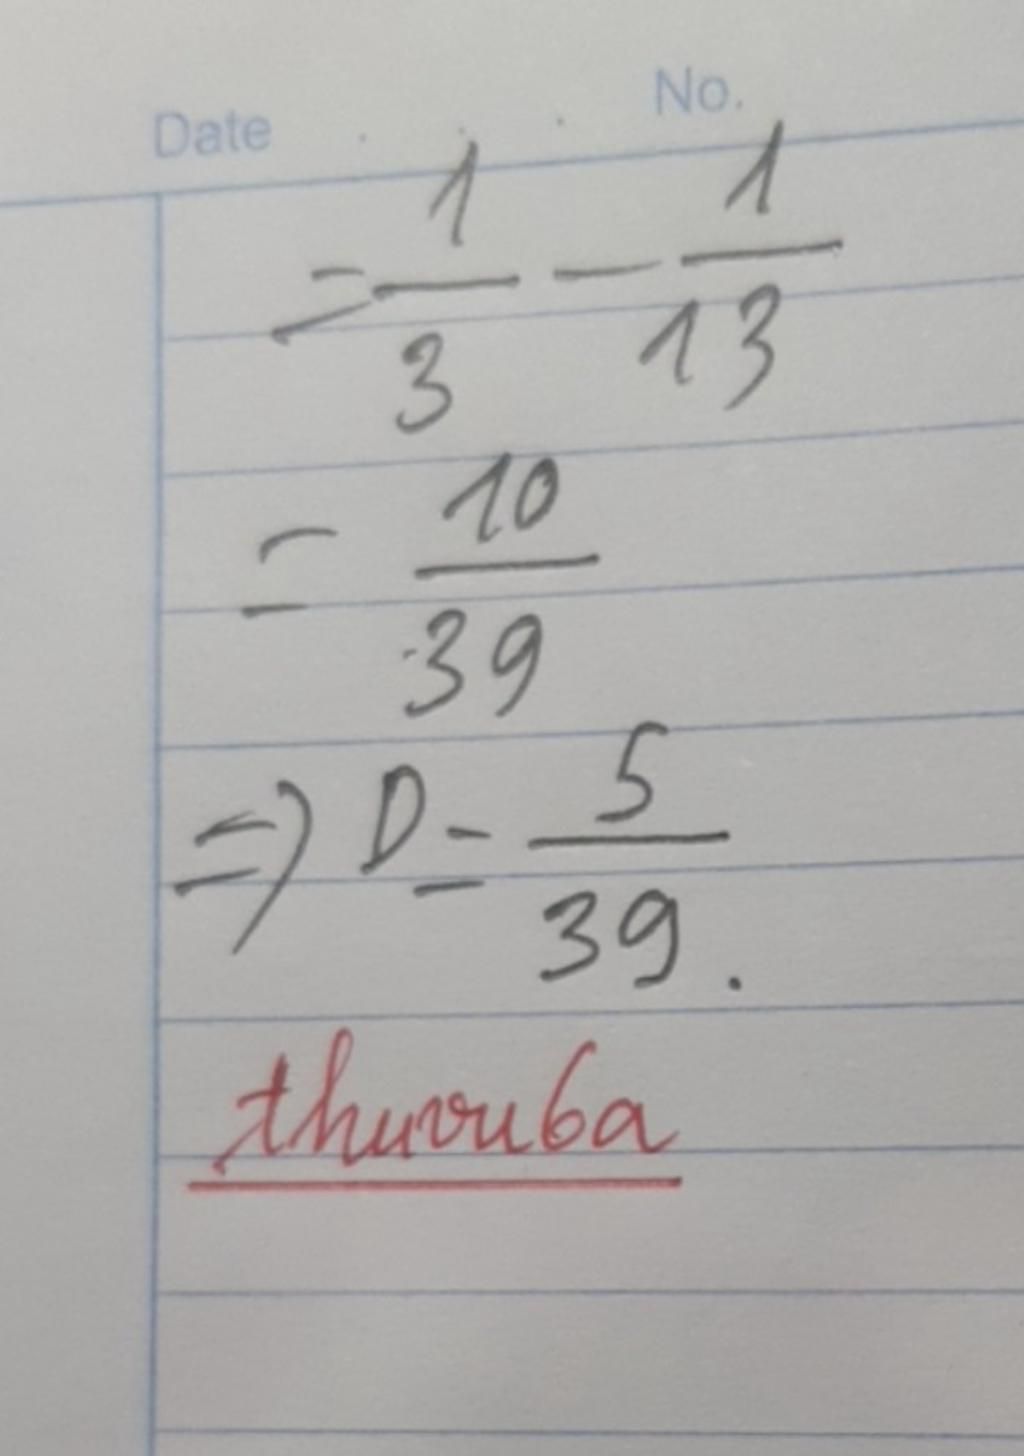 Date No.
= 1/3 - 1/13
= 10/39
=> D = 5/39.
thuvuba